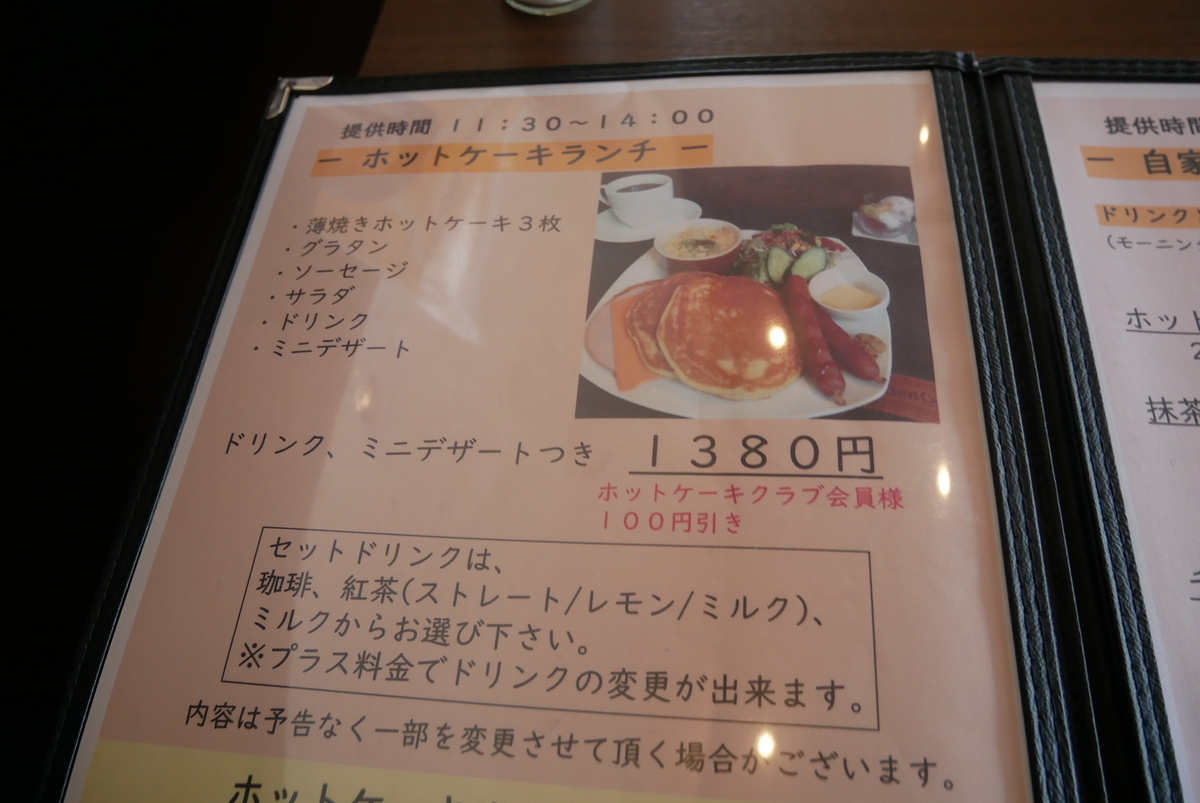 提供時間 11:30～14:00
－ ホットケーキランチ －
・薄焼きホットケーキ3枚
・グラタン
・ソーセージ
・サラダ
・ドリンク
・ミニデザート
ドリンク、ミニデザートつき 1380円
ホットケーキクラブ会員様
100円引き
セットドリンクは、
珈琲、紅茶(ストレート/レモン/ミルク)、
ミルクからお選び下さい。
※プラス料金でドリンクの変更が出来ます。
内容は予告なく一部を変更させて頂く場合がございます。
ホットケー
提供時
－ 自家
ドリンク
(モーニン
ホット
2
抹茶